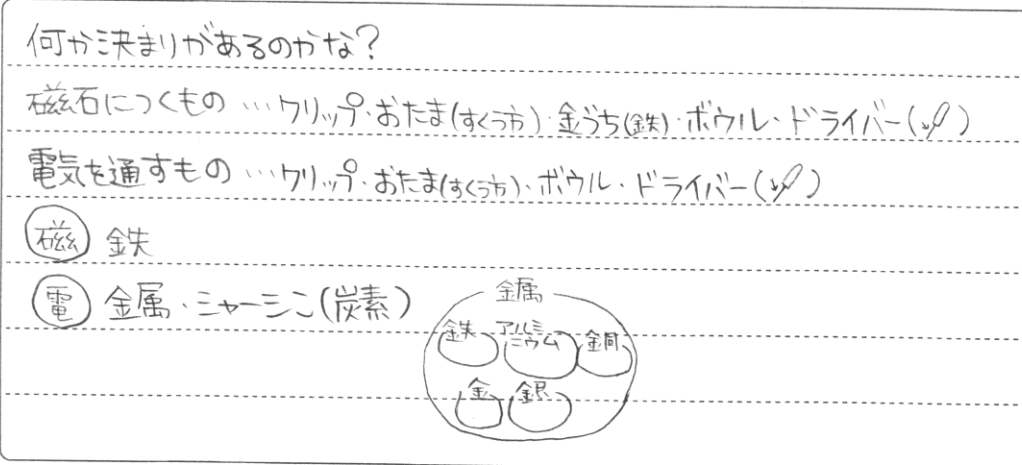 何か決まりがあるのかな?
磁石につくもの…クリップ・おたま(すくう方)・金づち(鉄)・ボウル・ドライバー( )
電気を通すもの…クリップ・おたま(すくう方)・ボウル・ドライバー( )
磁 鉄
電 金属・シャーシン(炭素)
金属
鉄 アルミニウム 銅
金 銀